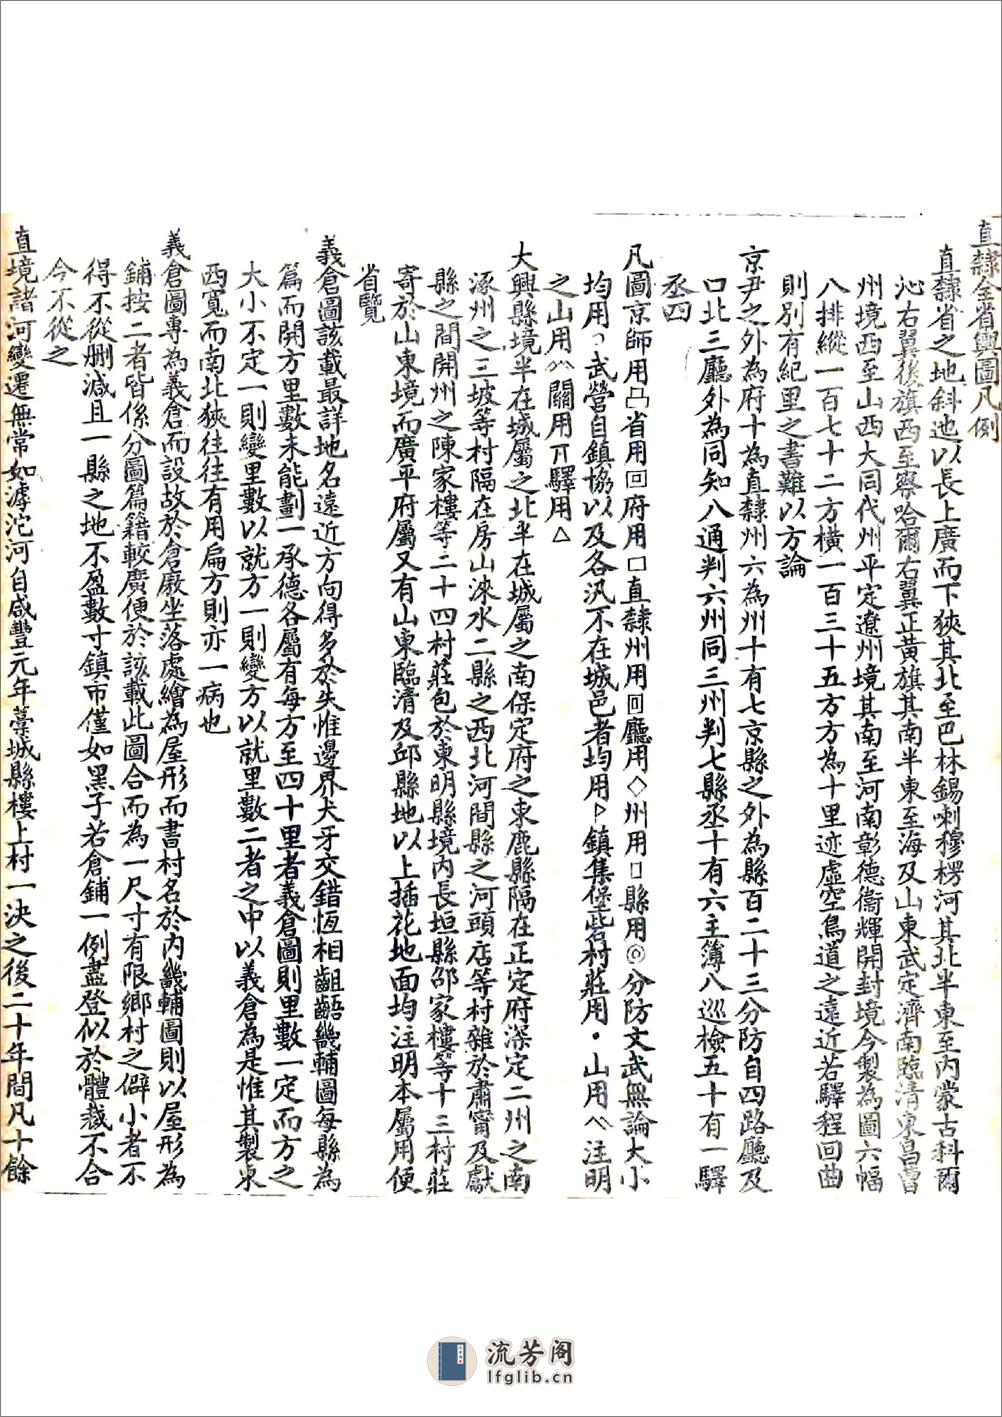 直隸全省輿圖凡例
直隸省之地斜迆以長上廣而下狹其北至巴林錫喇穆楞河其北半東至內蒙古科爾
沁右翼後旗西至察哈爾右翼正黃旗其南半東至海及山東武定濟南臨清東昌曹
州境西至山西大同代州平定遼州境其南至河南彰德衞輝開封境今製為圖六幅
八排縱一百七十二方橫一百三十五方方為十里迹虛空鳥道之遠近若驛程回曲
則別有紀里之書難以方論
京尹之外為府十為直隸州六為州十有七京縣之外為縣百二十三分防自四路廳及
口北三廳外為同知八通判六州同三州判七縣丞十有六主簿八巡檢五十有一驛
丞四
凡圖京師用凸省用回府用□直隸州用回廳用◇州用▯縣用◎分防文武無論大小
均用武營自鎮協以及各汛不在城邑者均用▷鎮集堡砦村莊用•山用^注明
之山用^關用驛用△
大興縣境半在城屬之北半在城屬之南保定府之束鹿縣隔在正定府深定二州之南
涿州之三坡等村隔在房山淶水二縣之西北河間縣之河頭店等村雜於肅甯及獻
縣之間開州之陳家樓等二十四村莊包於東明縣境內長垣縣邵家樓等十三村莊
寄於山東境而廣平府屬又有山東臨清及邱縣地以上插花地面均注明本屬用便
省覽
義倉圖該載最詳地名遠近方向得多於失惟邊界犬牙交錯恆相齟齬畿輔圖每縣為
篇而開方里數未能劃一承德各屬有每方至四十里者義倉圖則里數一定而方之
大小不定一則變里數以就方一則變方以就里數二者之中以義倉為是惟其製東
西寬而南北狹往往有用扁方則亦一病也
義倉圖專為義倉而設故於倉廒坐落處繪為屋形而書村名於內畿輔圖則以屋形為
鋪按二者皆係分圖篇籍較廣便於該載此圖合而為一尺寸有限鄉村之僻小者不
得不從刪減且一縣之地不盈數寸鎮市僅如黑子若倉鋪一例盡登似於體裁不合
今不從之
直境諸河變遷無常如滹沱河自咸豐元年藁城縣樓上村一決之後二十年間凡十餘
流芳阁
lfglib.cn